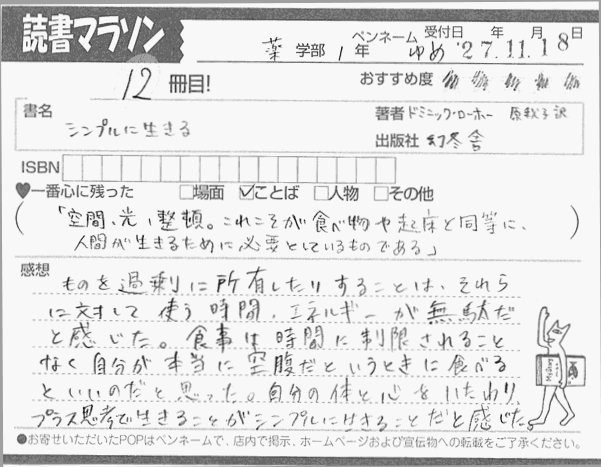 読書マラソン
薬 学部 1 年 ペンネーム ゆめ 受付日 '27年11月18日
12 冊目! おすすめ度
書名 シンプルに生きる
著者 ドミニック・ローホー 原秋子 訳
出版社 幻冬舎
ISBN
♥一番心に残った □場面 ☑ことば □人物 □その他
「空間、光、整頓。これこそが食べ物や起床と同等に、
人間が生きるために必要としているものである」
感想
ものを過剰に所有したりすることは、それら
に対して使う時間、エネルギーが無駄だ
と感じた。食事は時間に制限されること
なく自分が本当に空腹だというときに食べる
といいのだと思った。自分の体と心をいたわり、
プラス思考で生きることがシンプルに生きることだと感じた。
●お寄せいただいたPOPはペンネームで、店内で掲示、ホームページおよび宣伝物への転載をご了承ください。